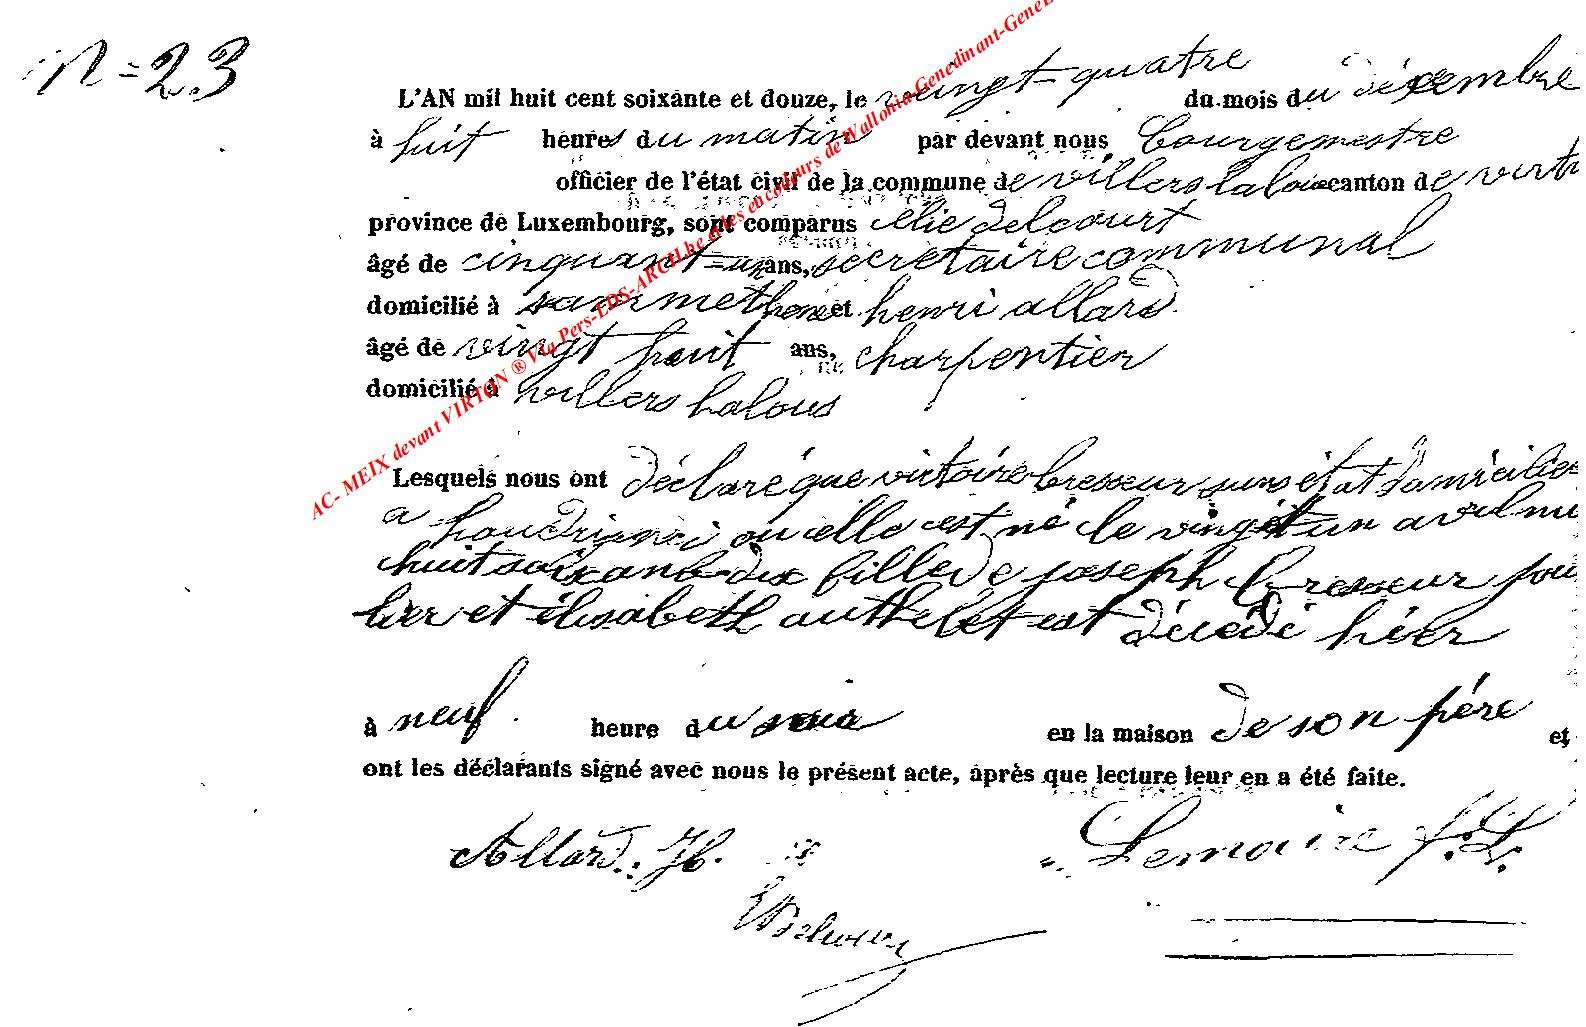 N=23
L'AN mil huit cent soixante et douze, le vingt-quatre du mois du décembre
à huit heures du matin par devant nous Bourgemestre
officier de l'état civil de la commune de villers laloue canton de virt
province de Luxembourg, sont comparus élie delcourt
âgé de cinquante-un ans, secrétaire communal
domicilié à et henri allard
âgé de vingt huit ans, charpentier
domicilié à villers halous
Lesquels nous ont déclaré que victoire bresseur sans état domiciliée
a houdrigni ou elle est né le vingt un avril mil
huit soixante-dix fille de joseph Bresseur jour
lier et élisabeth authelet est décédé hier
à neuf heure du soir en la maison de son père et
ont les déclarants signé avec nous le présent acte, après que lecture leur en a été faite.
Allard. H. Lemaire
EDelcourt
AC- MEIX devant VIRTON ® Via Pers-EDS-ARCH he actes en cours de Wallonia-Genedinant-GeneL